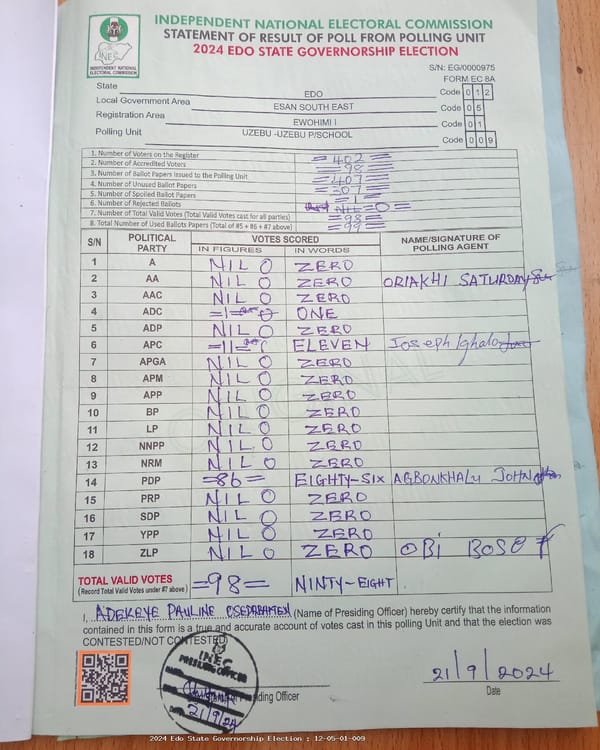 INDEPENDENT NATIONAL ELECTORAL COMMISSION
STATEMENT OF RESULT OF POLL FROM POLLING UNIT
2024 EDO STATE GOVERNORSHIP ELECTION
INEC
INDEPENDENT NATIONAL ELECTORAL COMMISSION
S/N: EG/0000975
FORM EC 8A
State EDO Code 0 1 2
Local Government Area ESAN SOUTH EAST Code 0 5
Registration Area EWOHIMI I Code 0 1
Polling Unit UZEBU -UZEBU P/SCHOOL Code 0 0 9
1. Number of Voters on the Register =402=
2. Number of Accredited Voters =98=
3. Number of Ballot Papers Issued to the Polling Unit =407=
4. Number of Unused Ballot Papers =307=
5. Number of Spoiled Ballot Papers =1=
6. Number of Rejected Ballots NIL=0=
7. Number of Total Valid Votes (Total Valid Votes cast for all parties) =98=
8. Total Number of Used Ballots Papers (Total of #5 + #6 + #7 above) =99=
S/N POLITICAL PARTY VOTES SCORED NAME/SIGNATURE OF POLLING AGENT
IN FIGURES IN WORDS
1 A NIL 0 ZERO
2 AA NIL 0 ZERO ORIAKHI SATURDAY
3 AAC NIL 0 ZERO
4 ADC =1= ONE
5 ADP NIL 0 ZERO
6 APC =11= ELEVEN Joseph Ighalo
7 APGA NIL 0 ZERO
8 APM NIL 0 ZERO
9 APP NIL 0 ZERO
10 BP NIL 0 ZERO
11 LP NIL 0 ZERO
12 NNPP NIL 0 ZERO
13 NRM NIL 0 ZERO
14 PDP =86= EIGHTY-SIX AGBONKHALU JOHN
15 PRP NIL 0 ZERO
16 SDP NIL 0 ZERO
17 YPP NIL 0 ZERO
18 ZLP NIL 0 ZERO OBI BOSE
TOTAL VALID VOTES =98= NINTY-EIGHT
(Record Total Valid Votes under #7 above)
I, ADEKEYE PAULINE (Name of Presiding Officer) hereby certify that the information
contained in this form is a true and accurate account of votes cast in this polling Unit and that the election was
CONTESTED/NOT CONTESTED
INEC
PRESIDING OFFICER
21/9/24
Presiding Officer
21/9/2024
Date
2024 Edo State Governorship Election : 12-05-01-009